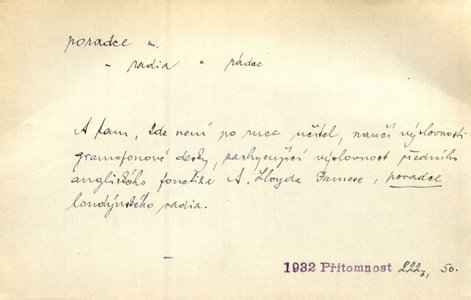 poradce m.
" radia " rádce
A tam, kde není po ruce učitel, naučí výslovnosti
gramofonové desky, zachycující výslovnost předního
anglického fonetika A. Lloyda Jamese, poradce
londýnského radia.
1932 Přítomnost 50.